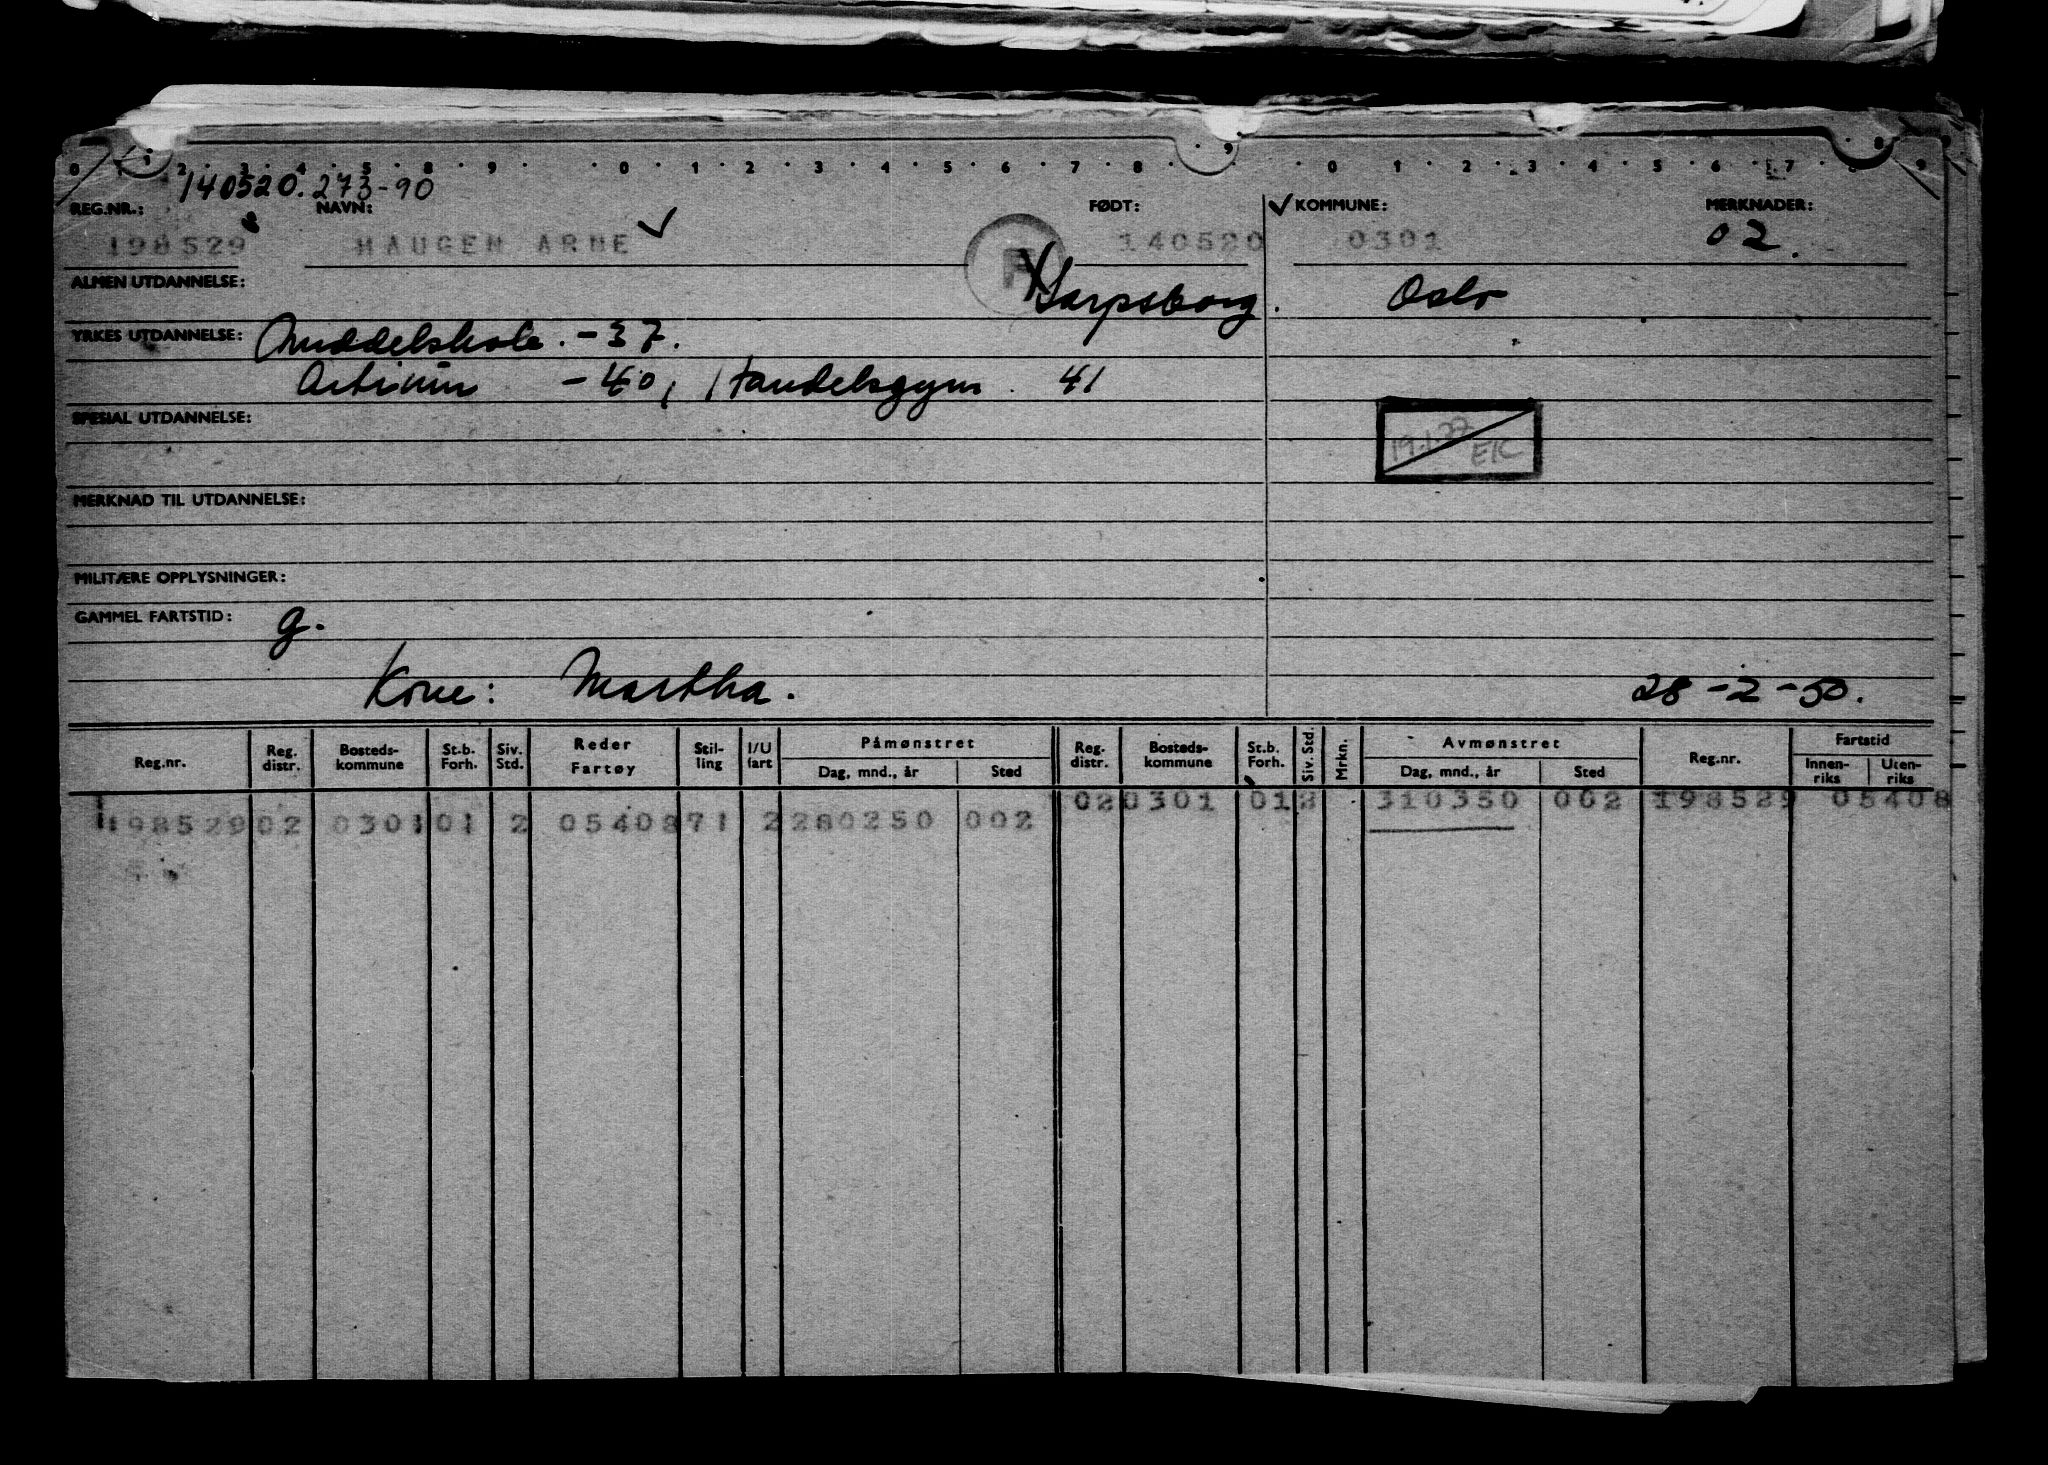 0 1 2 3 4 5 8 9 0 1 2 3 4 5 6 7 8 9 0 1 2 3 4 5 6 7 8 9
140520. 273-90
REG.NR.: NAVN: FØDT: KOMMUNE: MERKNADER:
198529 HAUGEN ARNE 140520 0301 02.
ALMEN UTDANNELSE: Sarpsborg. Oslo
YRKES UTDANNELSE: Middelskole. -37.
Artium -40, Handelsgym. 41
SPESIAL UTDANNELSE:
19.1.77 EK
MERKNAD TIL UTDANNELSE:
MILITÆRE OPPLYSNINGER:
GAMMEL FARTSTID: g.
Kone: Martha. 28-2-50.
Reg.nr. Reg. distr. Bosteds- kommune St.b. Forh. Siv. Std. Reder Fartøy Stil- ling I/U fart Påmønstret Dag, mnd., år Sted Reg. distr. Bosteds- kommune St.b. Forh. Siv. Std. Mrkn. Avmønstret Dag, mnd., år Sted Reg.nr. Fartstid Innen- riks Uten- riks
02 0301 01 2 310350 002 198529 05408
198529 02 0301 01 2 05408 71 2 280250 002